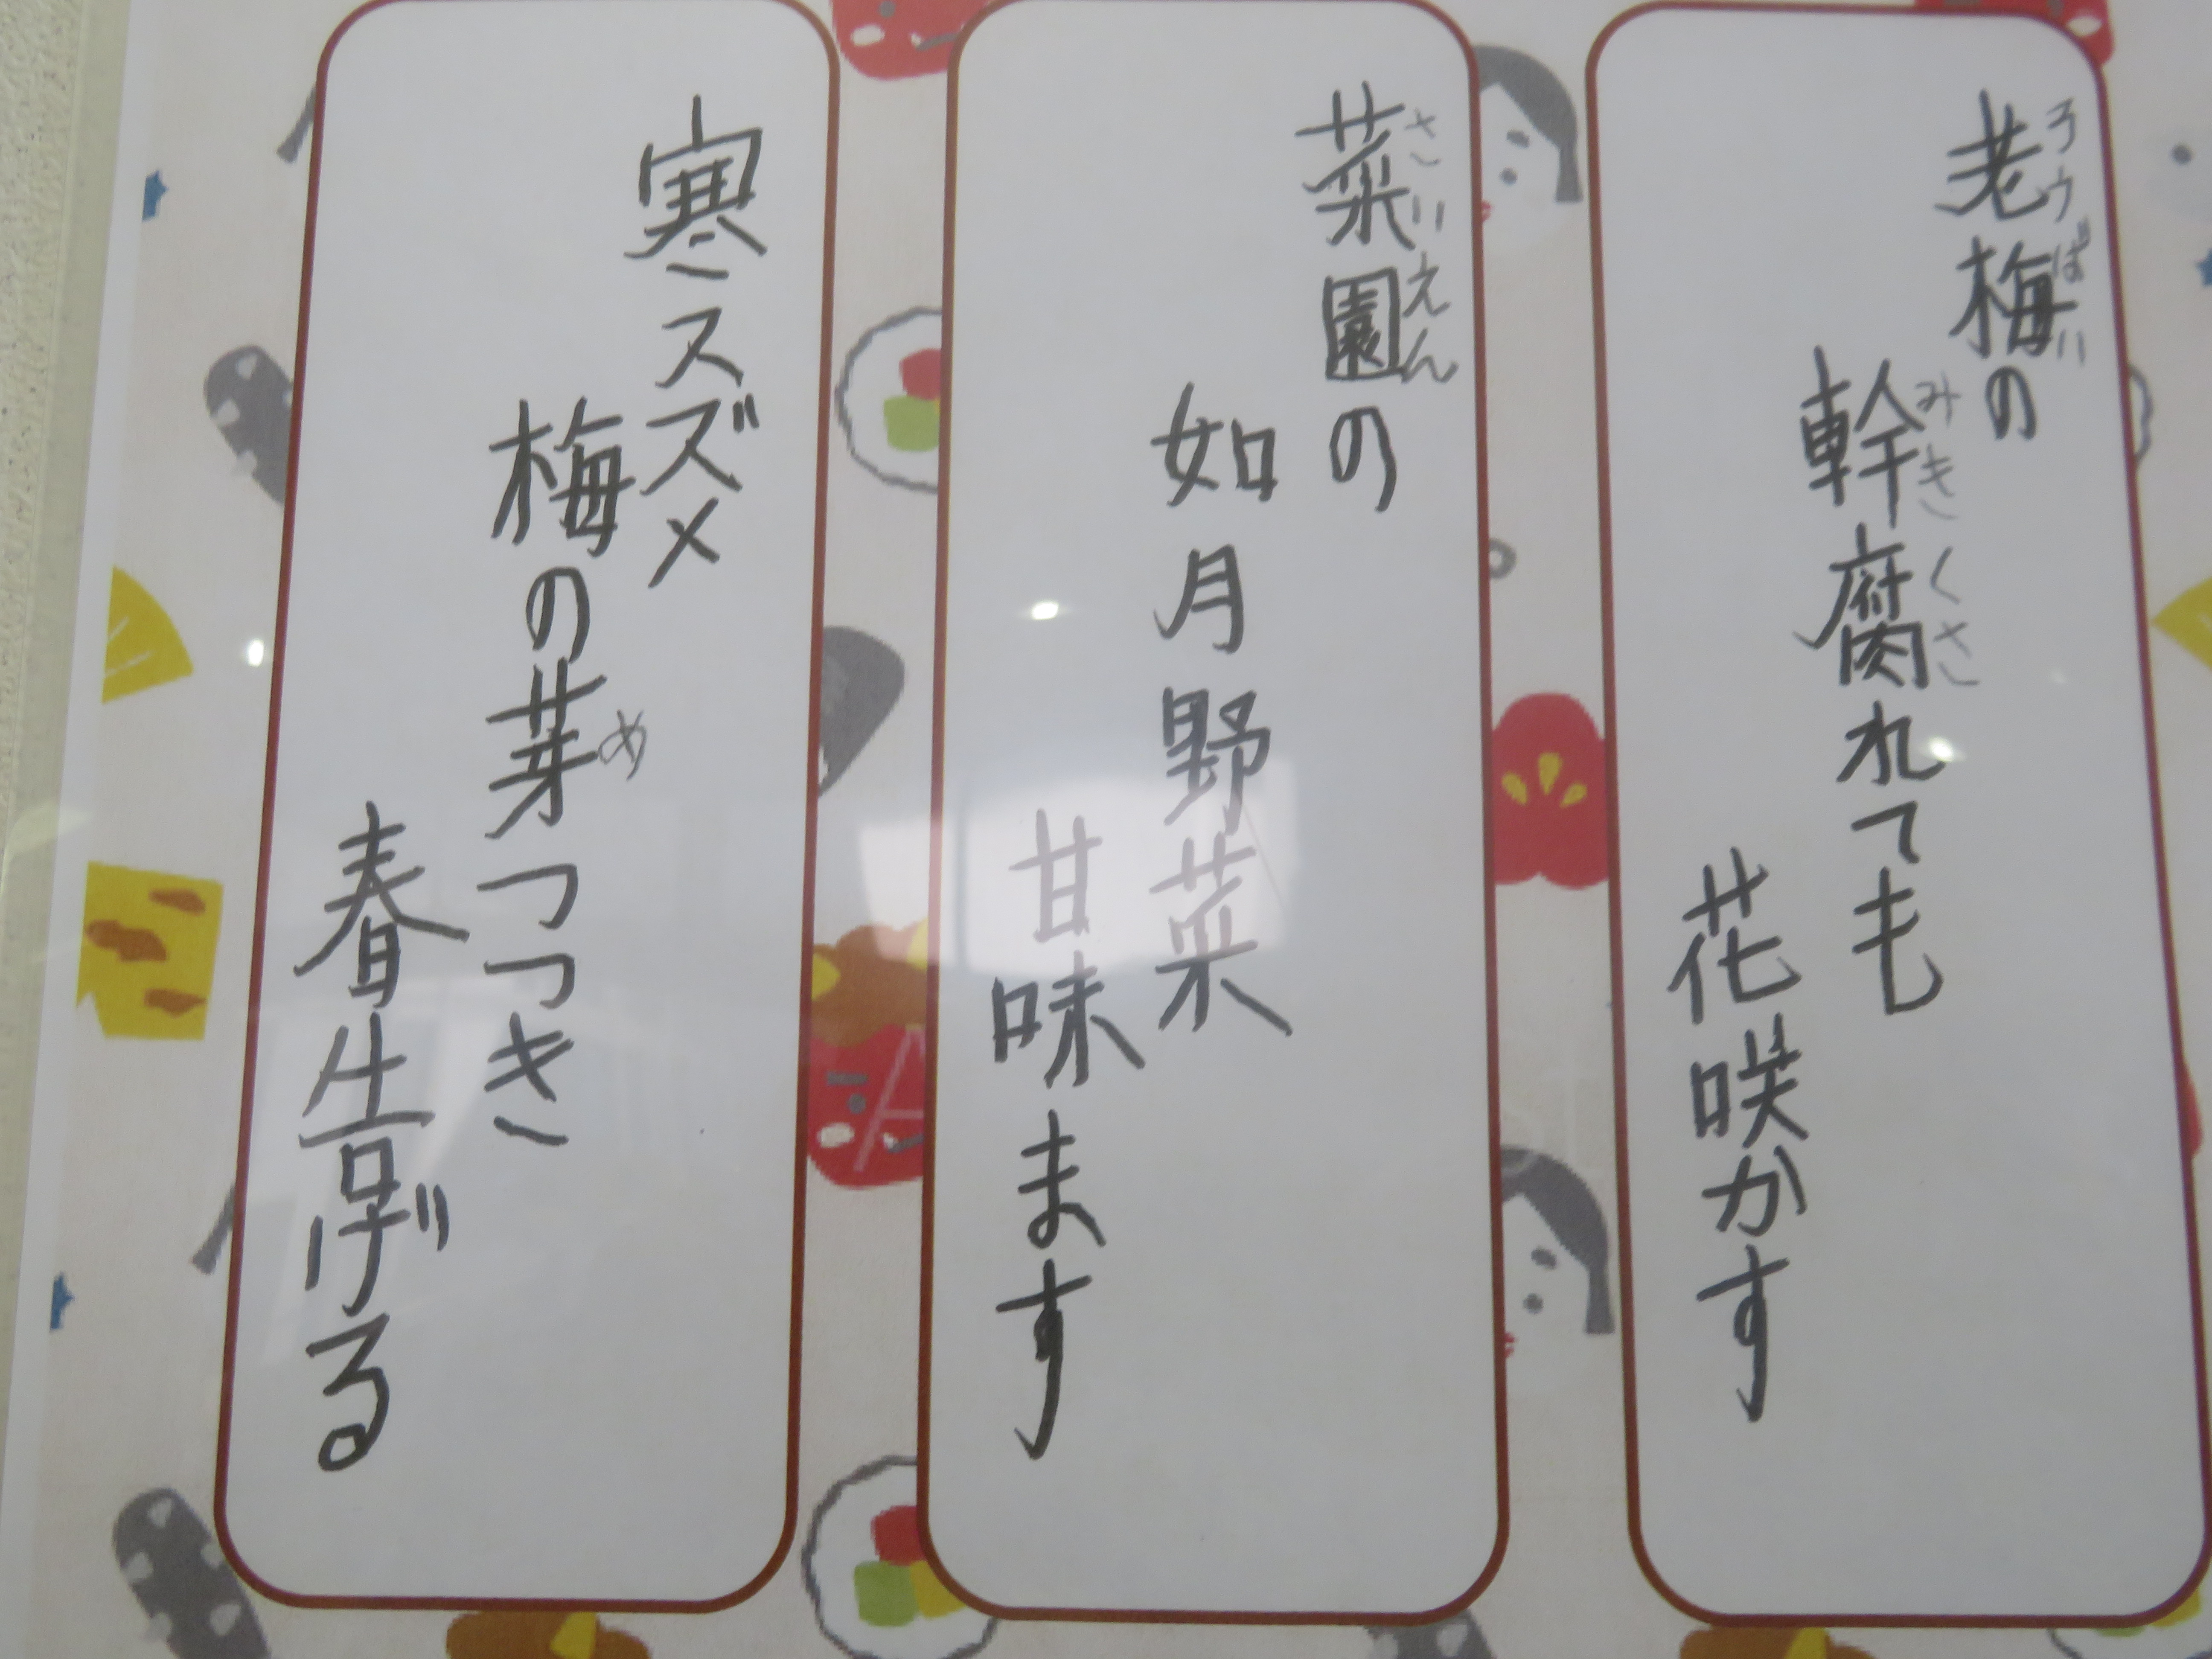 老梅の
ろうばい
幹腐れても
みきくさ
花咲かす
菜園の
さいえん
如月野菜
甘味ます
寒スズメ
梅の芽つつき
め
春告げる